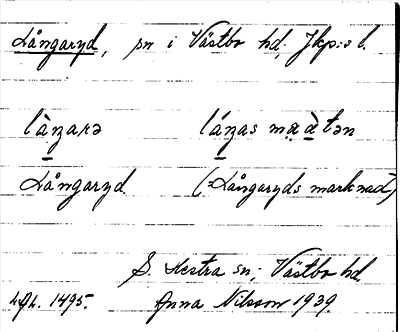 Långaryd, sn i Västbo hd, Jkp:s l.
là̱ŋarə lá̱ŋas maà̱tən
Långaryd (=Långaryds marknad)
S. Hestra sn, Västbo hd
1495. Anna Nilsson 1939.